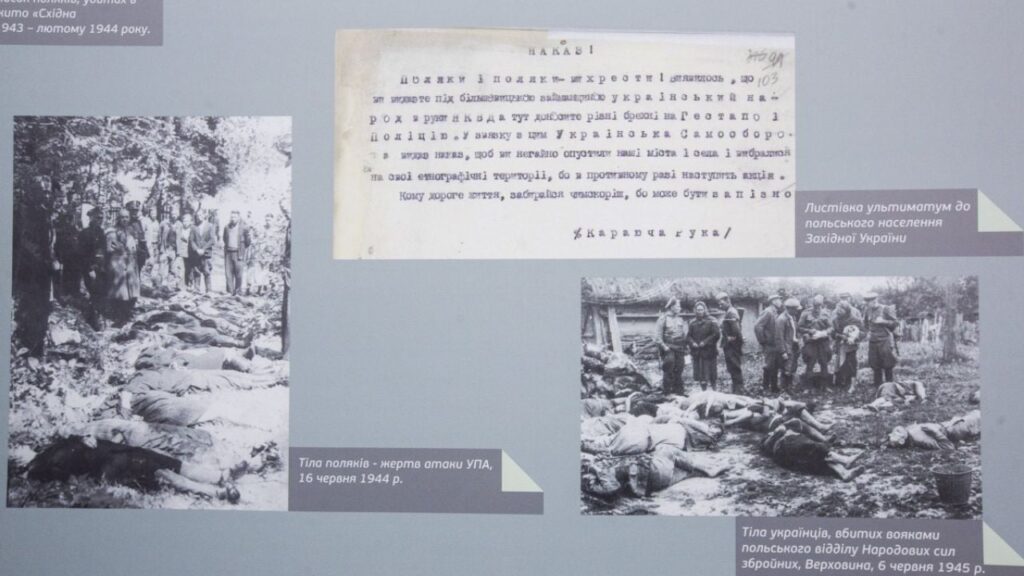 поляків, убитих в
«Східна
943 – лютому 1944 року.
НАКАЗ!
103
Поляки і поляки-вихрести! Виявилось, що
ви видаєте під большевицькою займанщиною український на-
род в руки НКВДа тут доносите різні брехні на Гестапо і
Поліцію. У звязку з цим Українська Самооборо-
а видав наказ, щоб ви негайно опустили наші міста і села і вибралися
на свої етнографічні території, бо в противному разі наступить акція.
Кому дороге життя, забирайся чимскоріш, бо може бути запізно
/Караюча Рука/
Листівка ультиматум до
польського населення
Західної України
Тіла поляків - жертв атаки УПА,
16 червня 1944 р.
Тіла українців, вбитих вояками
польського відділу Народових сил
збройних, Верховина, 6 червня 1945 р.